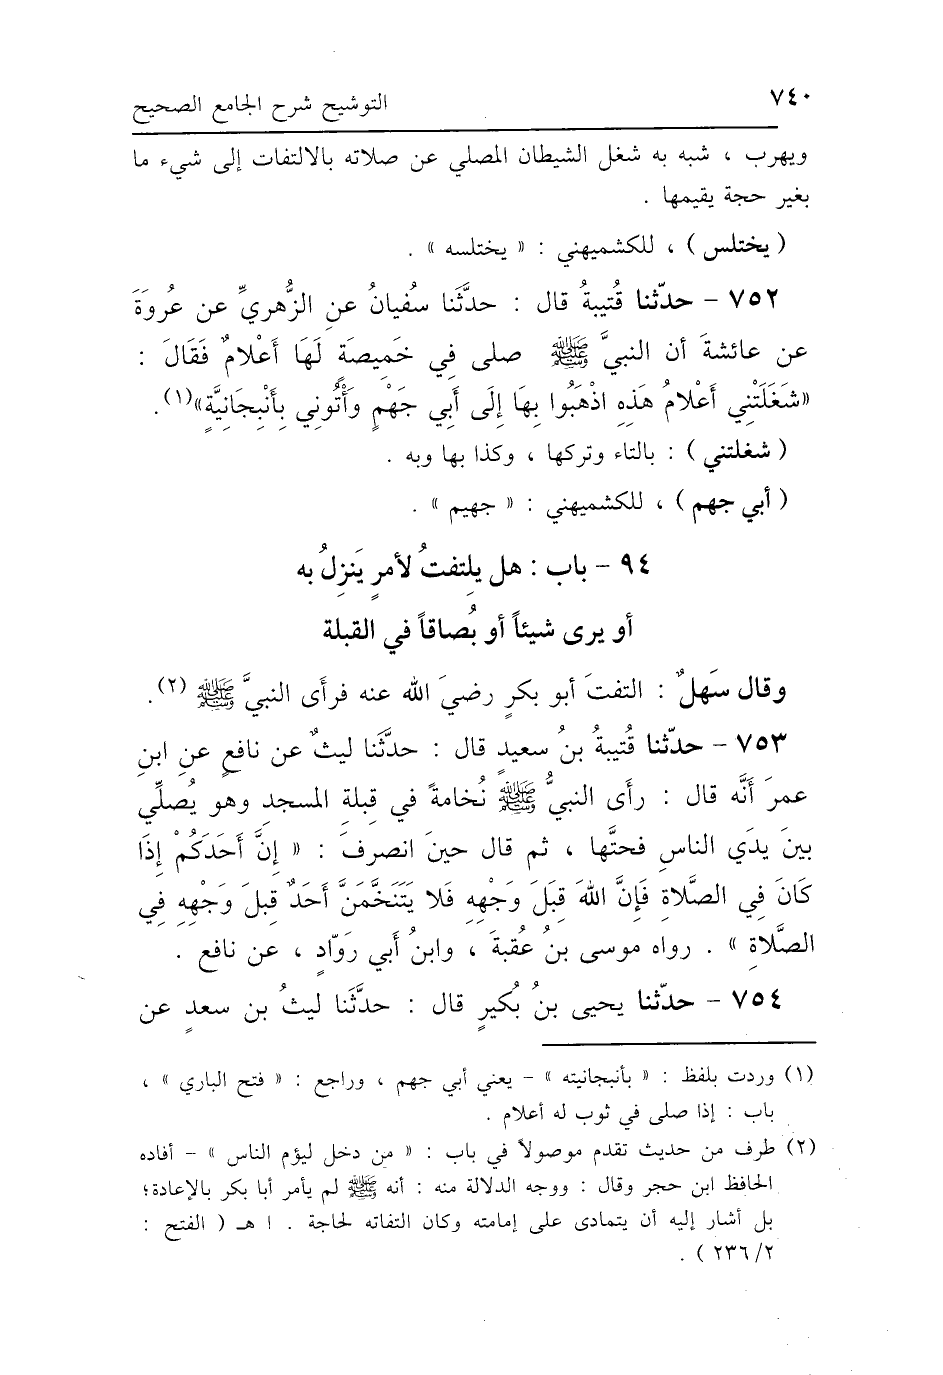 ٧٤٠ التوشيح شرح الجامع الصحيح
ويهرب ، شبه به شغل الشيطان المصلي عن صلاته بالالتفات إلى شيء ما
بغير حجة يقيمها .
( يختلس ) ، للكشميهني : « يختلسه » .
٧٥٢ – حدّثنا قُتيبةُ قال : حدَّثَنا سُفيانُ عنِ الزُّهريِّ عن عُروَةَ
عن عائشةَ أن النبيَّ ﷺ صلى في خَميصَةٍ لَهَا أَعْلامٌ فَقَالَ :
«شَغَلَتْنِي أَعْلامُ هَذِهِ اذْهَبُوا بِهَا إِلَى أَبِي جَهْمٍ وَأْتُونِي بِأَنْبِجَانِيَّةٍ»(١).
( شغلتني ) : بالتاء وتركها ، وكذا بها وبه .
( أبي جهم ) ، للكشميهني : « جهيم » .
٩٤ – باب : هل يلتفتُ لأمرٍ يَنزِلُ به
أو يرى شيئاً أو بُصاقاً في القبلة
وقال سَهلٌ : التفتَ أبو بكرٍ رضيَ الله عنه فرأى النبيَّ ﷺ (٢).
٧٥٣ – حدّثنا قُتيبةُ بنُ سعيدٍ قال : حدَّثَنا ليثٌ عن نافعٍ عنِ ابنِ
عمرَ أنَّه قال : رأى النبيُّ ﷺ نُخامةً في قِبلةِ المسجدِ وهو يُصلِّي
بينَ يدَي الناسِ فحتَّها ، ثم قال حينَ انصرفَ : « إِنَّ أَحَدَكُمْ إِذَا
كَانَ فِي الصَّلاةِ فَإِنَّ اللهَ قِبَلَ وَجْهِهِ فَلا يَتَنَخَّمَنَّ أَحَدٌ قِبلَ وَجْهِهِ فِي
الصَّلاةِ » . رواه موسى بنُ عُقبةَ ، وابنُ أبي روّادٍ ، عن نافعٍ .
٧٥٤ – حدّثنا يحيى بنُ بُكيرٍ قال : حدَّثَنا ليثُ بن سعدٍ عن
(١) وردت بلفظ : « بأنبجانيته » – يعني أبي جهم ، وراجع : « فتح الباري » ،
باب : إذا صلى في ثوب له أعلام .
(٢) طرف من حديث تقدم موصولاً في باب : « من دخل ليؤم الناس » – أفاده
الحافظ ابن حجر وقال : ووجه الدلالة منه : أنه ﷺ لم يأمر أبا بكر بالإعادة؛
بل أشار إليه أن يتمادى على إمامته وكان التفاته لحاجة . ا هـ ( الفتح :
٢٣٦/٢ ) .